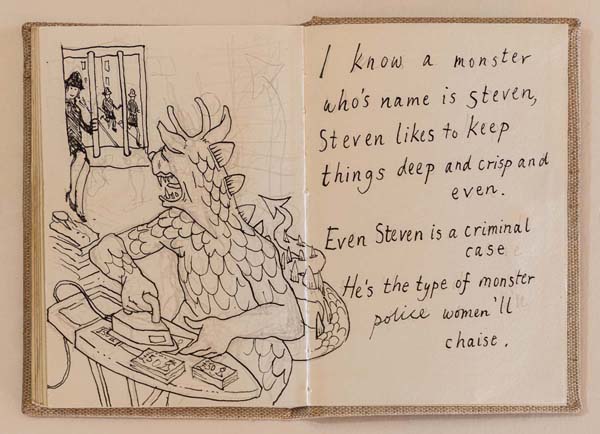 I know a monster
who's name is Steven,
Steven likes to keep
things deep and crisp and
even.
Even Steven is a criminal
case
He's the type of monster
police women'll
chaise.